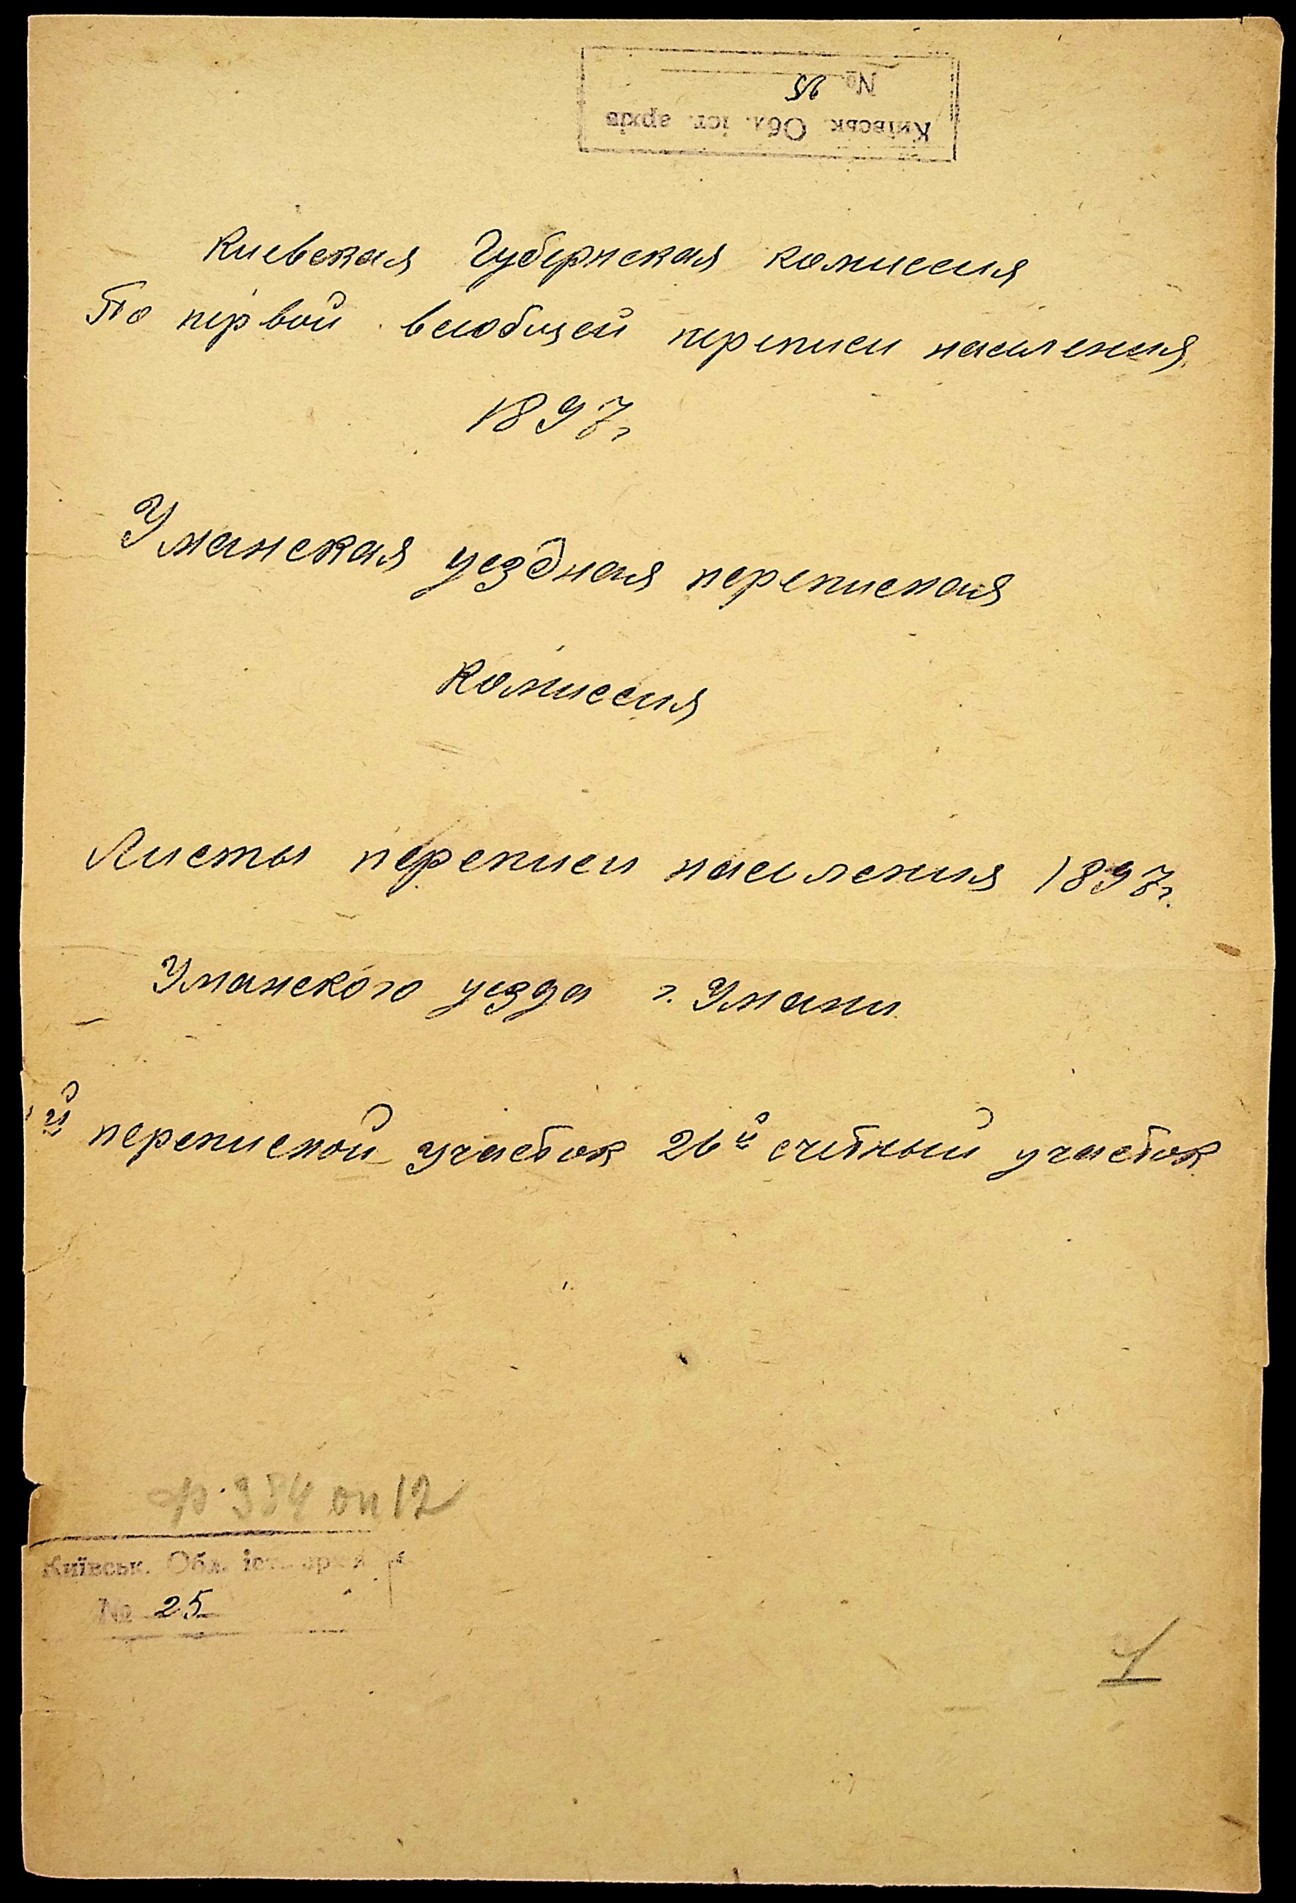 № 25
Київськ. Обл. іст. архів
Киевская Губернская комиссия
По первой всеобщей переписи населения
1897г
Уманская уездная переписная
комиссия
Листы переписи населения 1897г.
Уманского уезда г. Умани
й переписной участок 26й счетный участок
ф. 384 оп 12
Київськ. Обл. іст. архів
№ 25
1